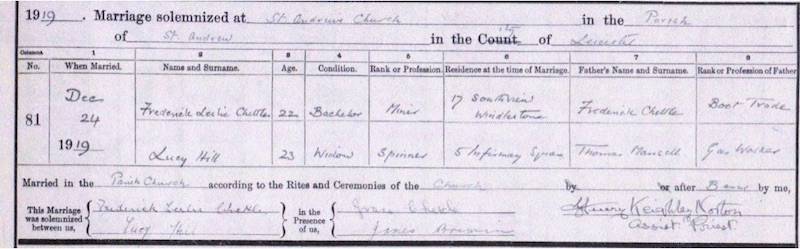 1919. Marriage solemnized at St. Andrews Church in the Parish
of St. Andrew in the County city of Leicester
Columns 1 2 3 4 5 6 7 8
No. When Married. Name and Surname. Age. Condition. Rank or Profession. Residence at the time of Marriage. Father's Name and Surname. Rank or Profession of Father
81 Dec 24 1919
Frederick Leslie Chettle 22 Bachelor Miner 17 Southview Windlestone Frederick Chettle Boot Trade
Lucy Hill 23 Widow Spinner 5 Infirmary Square Thomas Mansell Gas Worker
Married in the Parish Church according to the Rites and Ceremonies of the Church by or after Banns by me,
This Marriage was solemnized between us, Frederick Leslie Chettle Lucy Hill in the Presence of us, Grace Chettle James
Henry Keighley Norton
Assist Priest